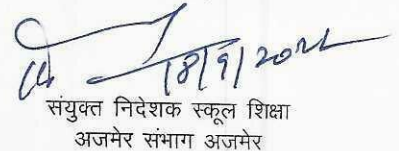 18/9/2021
संयुक्त निदेशक स्कूल शिक्षा
अजमेर संभाग अजमेर